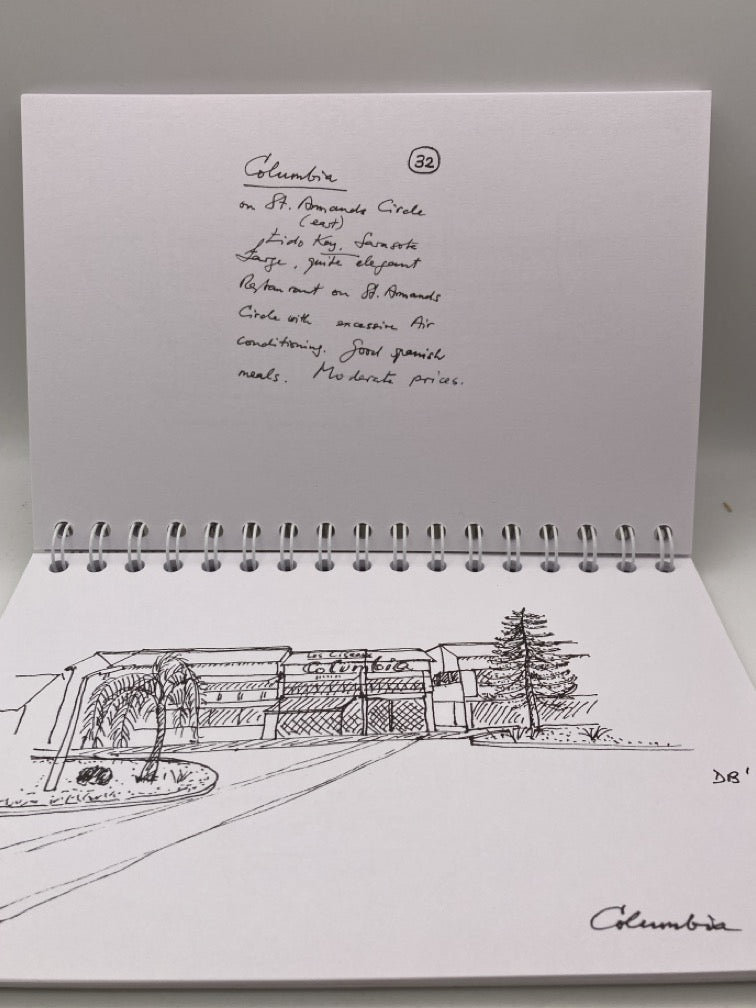 Columbia
32
on St. Armands Circle
(east)
Lido Key, Sarasota
Large, quite elegant
Restaurant on St. Armands
Circle with excessive Air
conditioning. Good spanish
meals. Moderate prices.
Columbia
DB'
Columbia